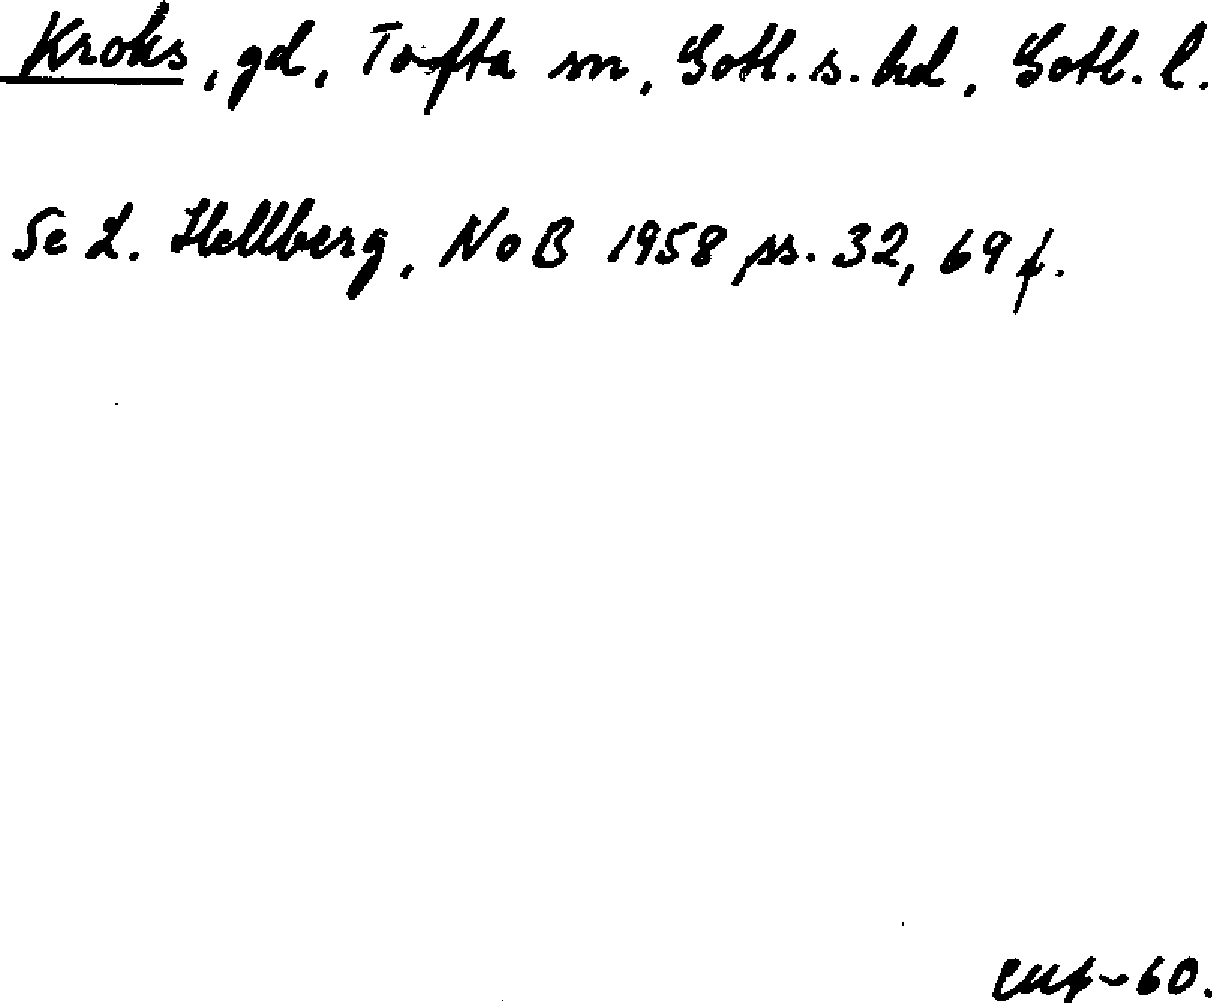 Kroks, gd, Tofta sn, Gotl. s. hd, Gotl. l.
Se L. Hellberg, NoB 1958 ss. 32, 69 f.